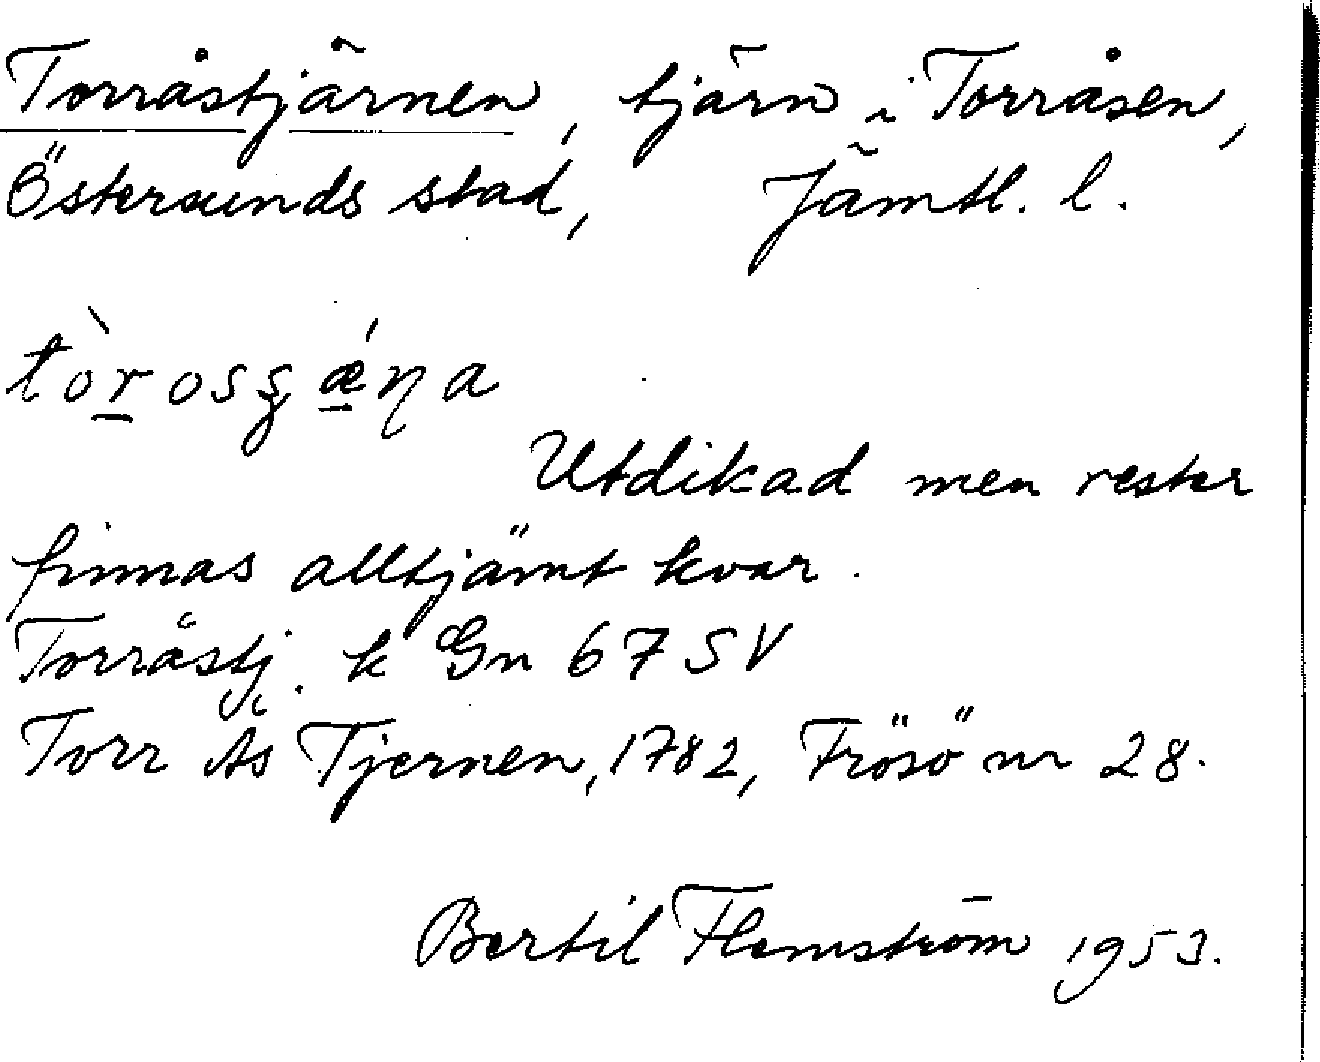 Torråstjärnen, tjärn i Torråsen,
Östersunds stad, Jämtl. l.
tòrosʂǽŋa
Utdikad men rester
finnas alltjämt kvar.
Torråstj. k Gn 67 SV
Torr Ås Tjernen, 1782, Frösö nr 28.
Bertil Flemström 1953.